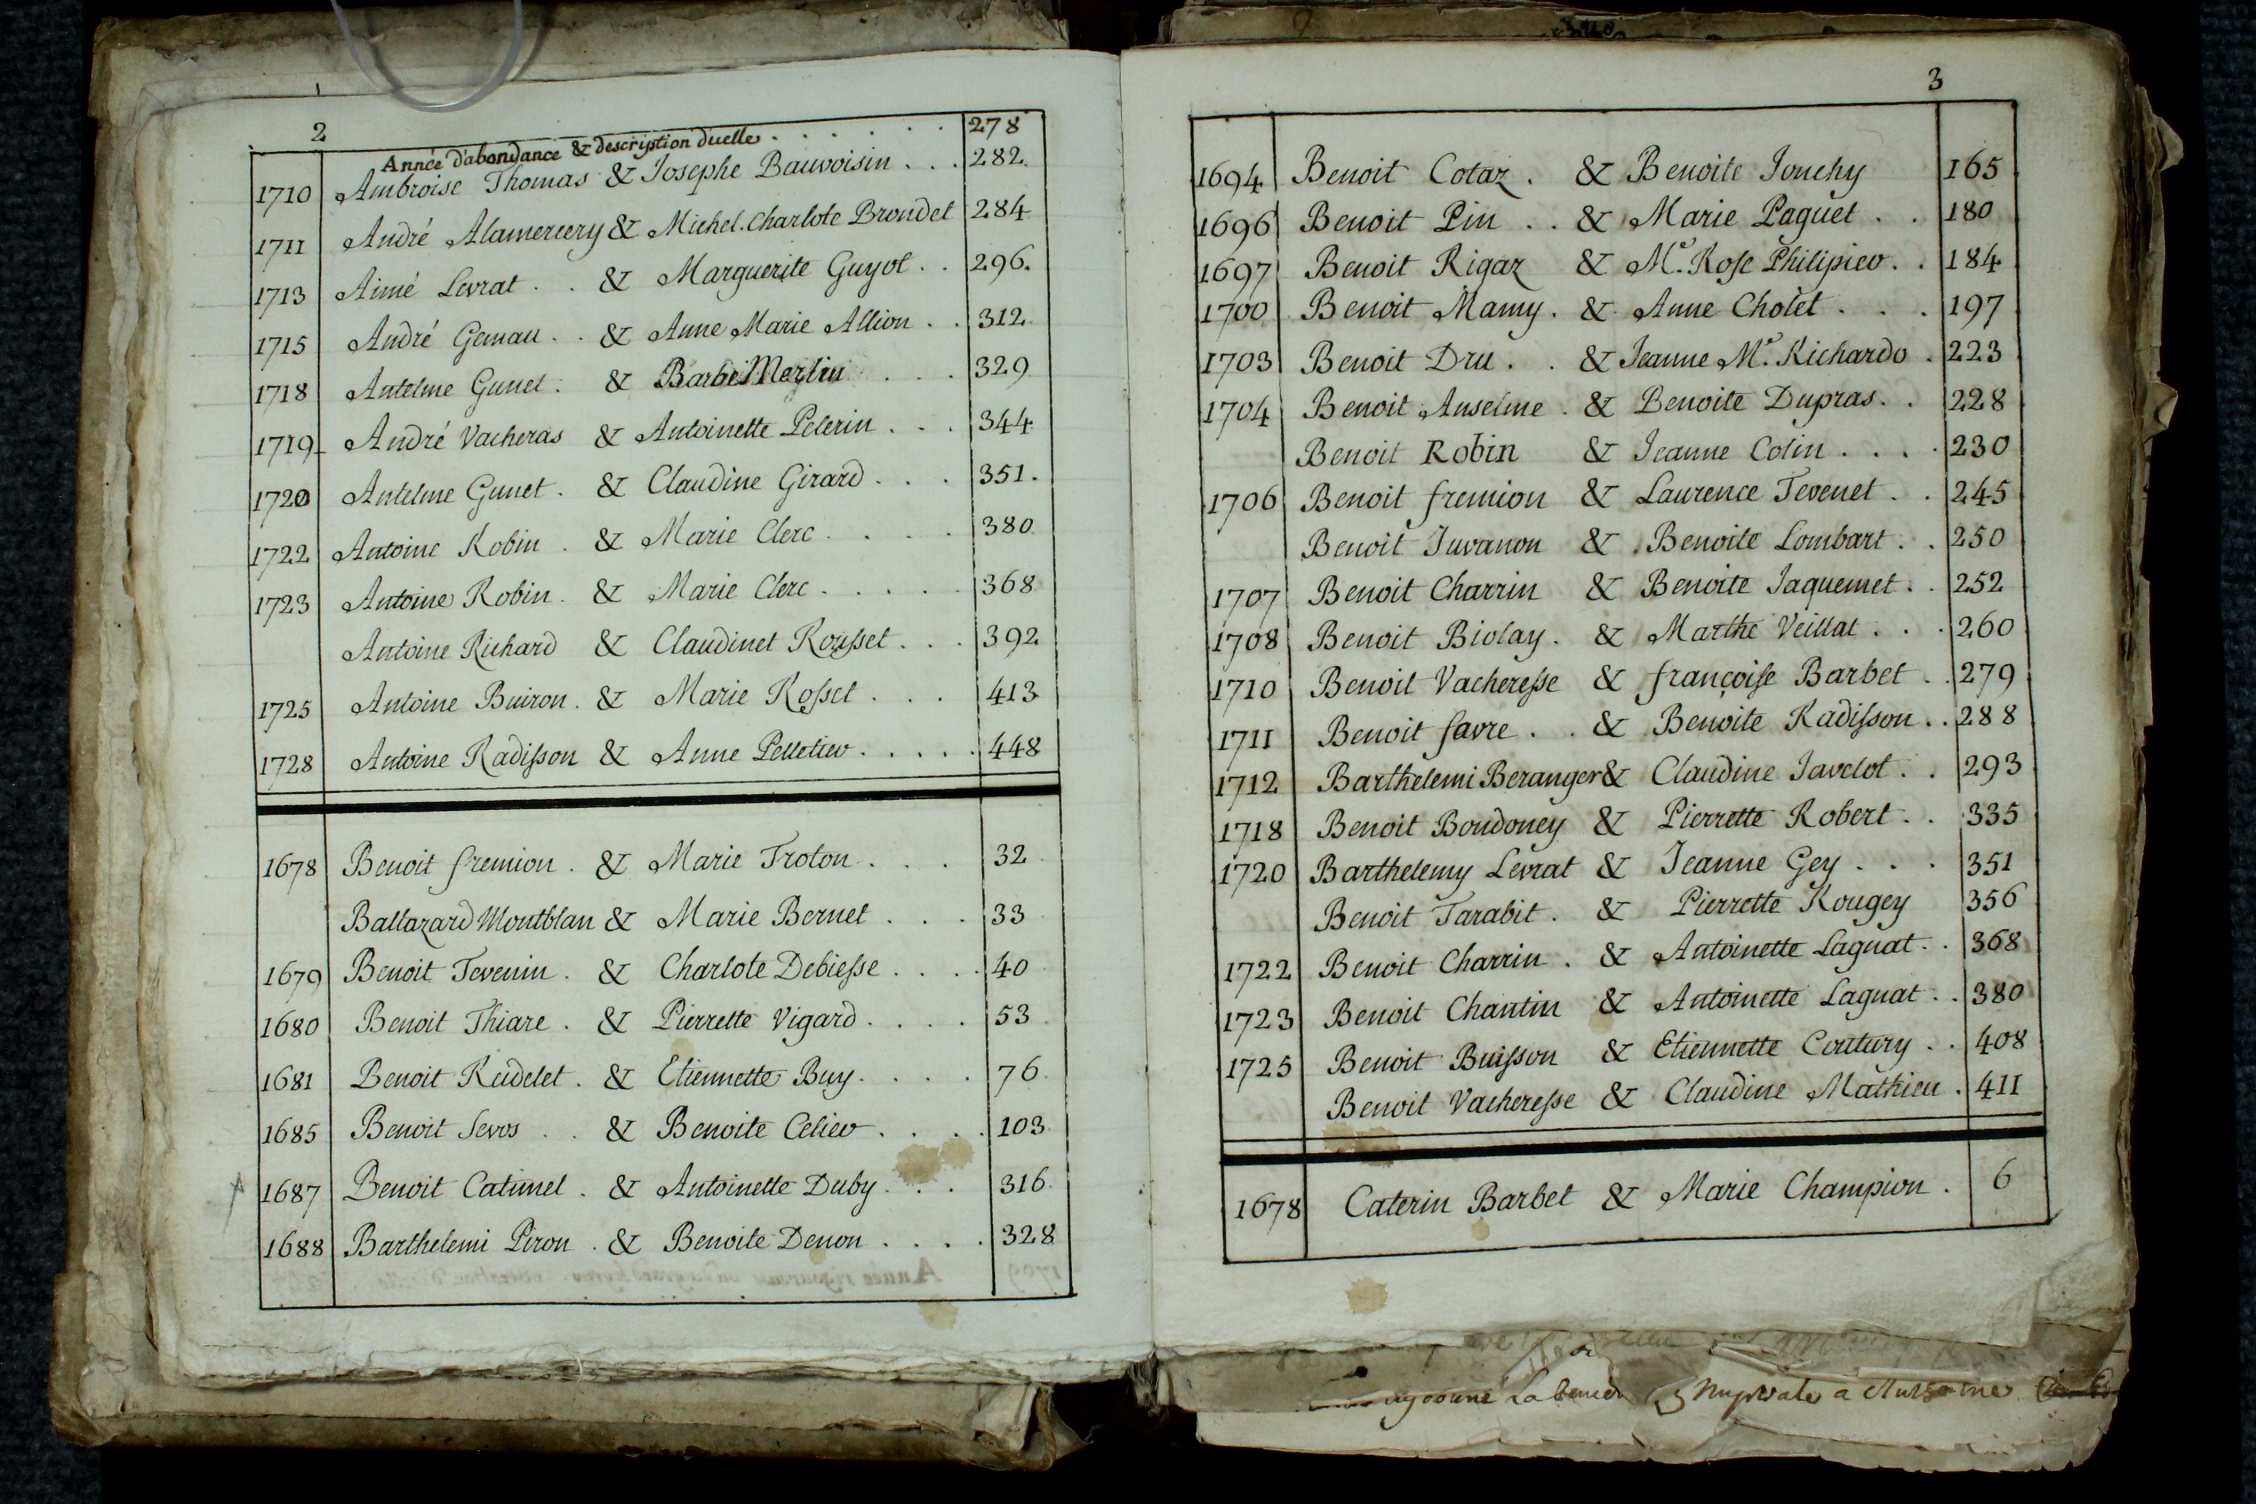 2
Année d'abondance & description d'uelle . . . . . . 278
1710 Ambroise Thomas & Josephe Bauvoisin . . . 282
1711 André Alamercery & Michel. Charlote Brondel 284
1713 Aimé Levrat . . & Marguerite Guyot . . 296.
1715 André Gemau . . & Anne Marie Allion . . 312
1718 Antelme Gunet . & Barbe Merlin . . . 329
1719 André Vacheras & Antoinette Pelerin . . . 344
1720 Antelme Gunet . & Claudine Girard . . . 351.
1722 Antoine Robin . & Marie Clerc . . . . 380
1723 Antoine Robin . & Marie Clerc . . . . . 368
Antoine Richard & Claudinet Rousset . . . 392
1725 Antoine Buiron . & Marie Rosset . . . 413
1728 Antoine Radisson & Anne Pelletier . . . . . 448
1678 Benoit fremion . & Marie Troton . . . 32
Baltazard Montblan & Marie Bernet . . . 33
1679 Benoit Tevenin . & Charlote Debiesse . . . . 40
1680 Benoit Thiare . & Pierrette Vigard . . . . 53
1681 Benoit Reidelet . & Etiennette Buy . . . . 76
1685 Benoit Sevos . . & Benoite Celier . . . . 103
1687 Benoit Catimel . & Antoinette Duby . . . 316
1688 Barthelemi Piron . & Benoite Denon . . . . 328
3
1694 Benoit Cotaz . & Benoite Jonchy 165
1696 Benoit Pin . . & Marie Paquet . . 180
1697 Benoit Rigaz & Me. Rose Philipier . . 184
1700 Benoit Mamy . & Anne Cholet . . . 197
1703 Benoit Dru . . & Jeanne Me. Richardo . 223
1704 Benoit Anselme . & Benoite Dupras . . 228
Benoit Robin & Jeanne Colin . . . . 230
1706 Benoit fremion & Laurence Tevenet . . 245
Benoit Juvanon & Benoite Lombart . . 250
1707 Benoit Charrin & Benoite Jaquemet . . 252
1708 Benoit Biolay . & Marthe Veillat . . . 260
1710 Benoit Vacheresse & françoise Barbet . . 279
1711 Benoit favre . . & Benoite Radisson . . 288
1712 Barthelemi Beranger & Claudine Javelot . . 293
1718 Benoit Boudoney & Pierrette Robert . . 335
1720 Barthelemy Levrat & Jeanne Gey . . . 351
Benoit Tarabit . & Pierrette Rougey 356
1722 Benoit Charrin . & Antoinette Lagnat . . 368
1723 Benoit Chantin & Antoinette Lagnat . . 380
1725 Benoit Buisson & Etiennette Coutury . . 408
Benoit Vacheresse & Claudine Mathieu . 411
1678 Caterin Barbet & Marie Champion . 6